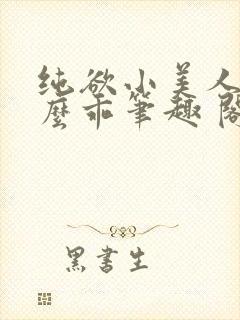 纯欲小美人
麼乖笔趣阁
黑書生